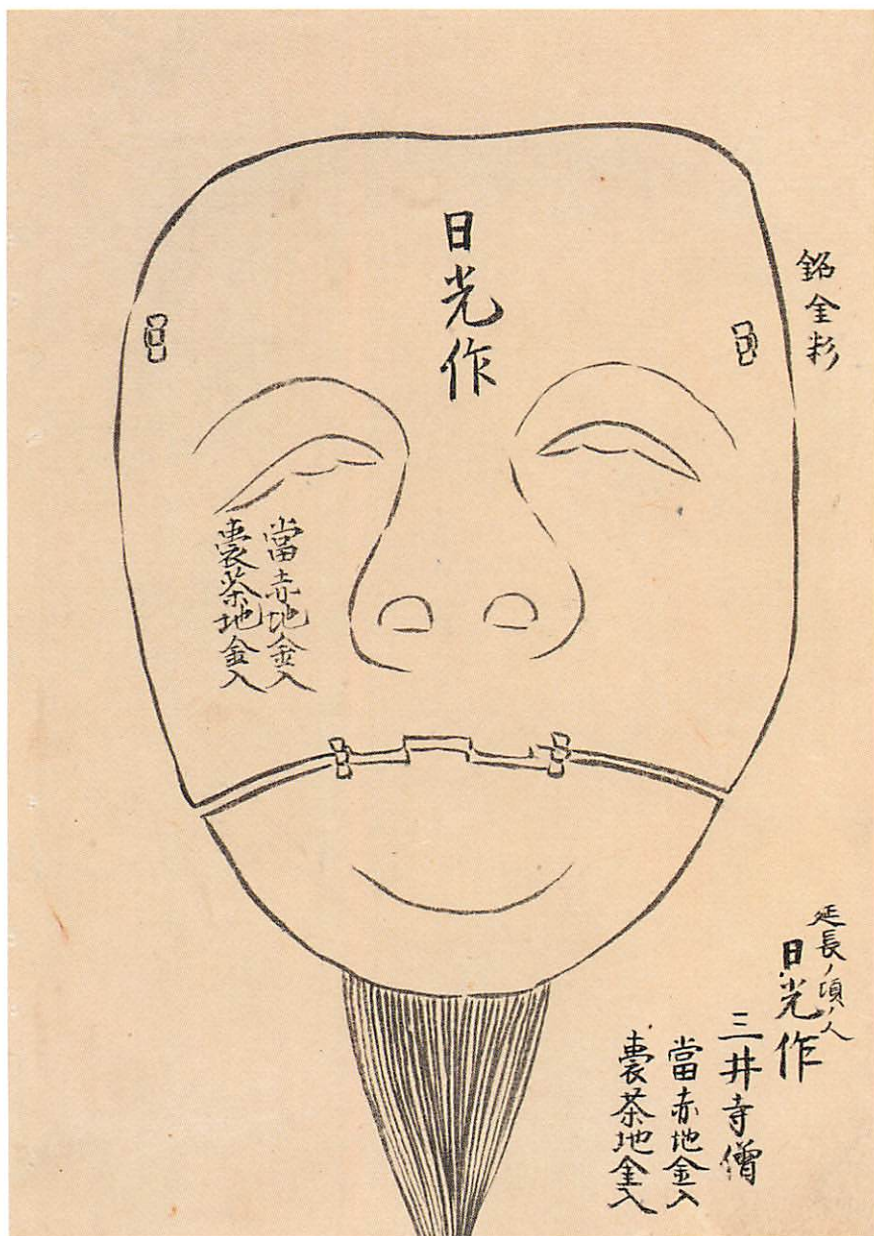 銘金粉
日光作
當赤地金入
裏茶地金入
延長ノ頃ノ人
日光作
三井寺僧
當赤地金入
裏茶地金入